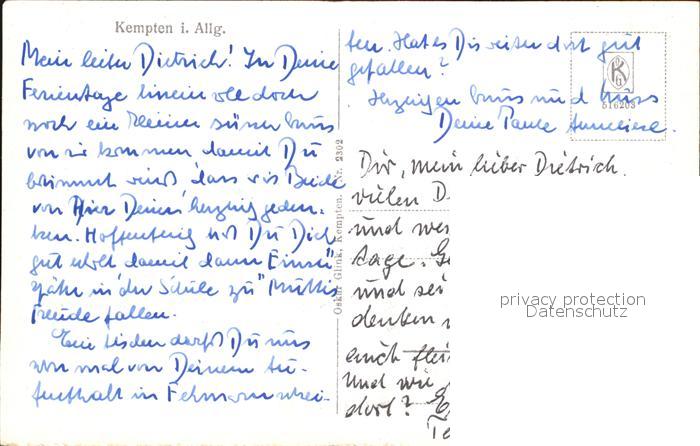 Kempten i. Allg.
Mein lieber Dietrich! In Deine
Ferientage hinein soll doch
noch ein kleiner süsser Gruss
von mir kommen damit Du
bestimmt weißt dass wir Beide
von Hier Deiner herzlich geden-
ken. Hoffentlich hast Du Dich
gut erholt damit dann Einsen
in der Schule zu Muttis
Freude fallen.
Ein bischen darfst Du uns
mal von Deinem Au-
fenthalt in Fehmarn schrei-
ben. Hat es Dir weiter dort gut
gefallen?
Herzigen Gruss und Kuss
Deine Tante Anneliese.
Oskar Glink, Kempten. Nr. 2302
K
Dir, mein lieber Dietrich.
vielen D
und we
tage.
und sei
denken
auch
Und wie
dort?
privacy protection
Datenschutz